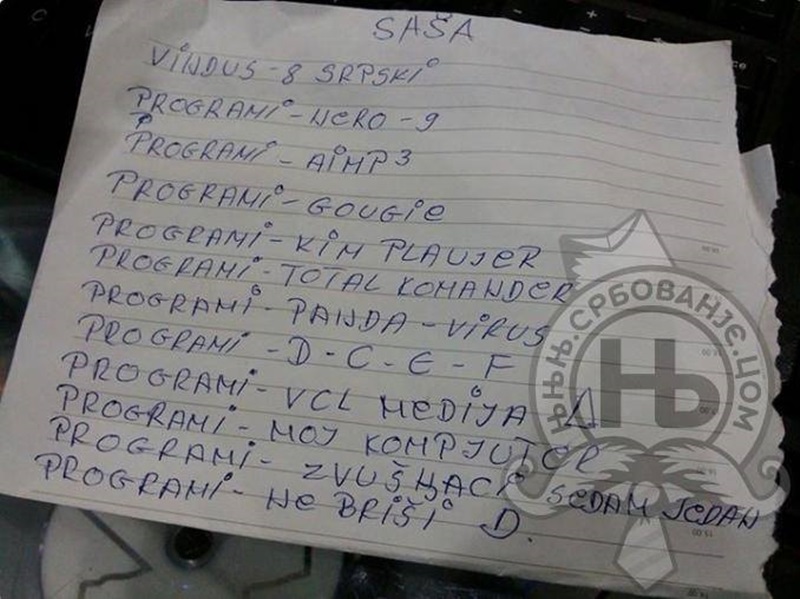 SAŠA
VINDUS-8 SRPSKI
PROGRAMI-NERO-9
PROGRAMI-AIMP3
PROGRAMI-GOUGIE
PROGRAMI-KIM PLAUJER
PROGRAMI-TOTAL KOMANDER
PROGRAMI-PANDA-VIRUS
PROGRAMI-D-C-E-F
PROGRAMI-VCL MEDIJA
PROGRAMI-MOJ KOMPJUTER
PROGRAMI-ZVUŠNJACI SEDAM JEDAN
PROGRAMI-NE BRIŠI D.
њњњ.србовање.цом
Њ